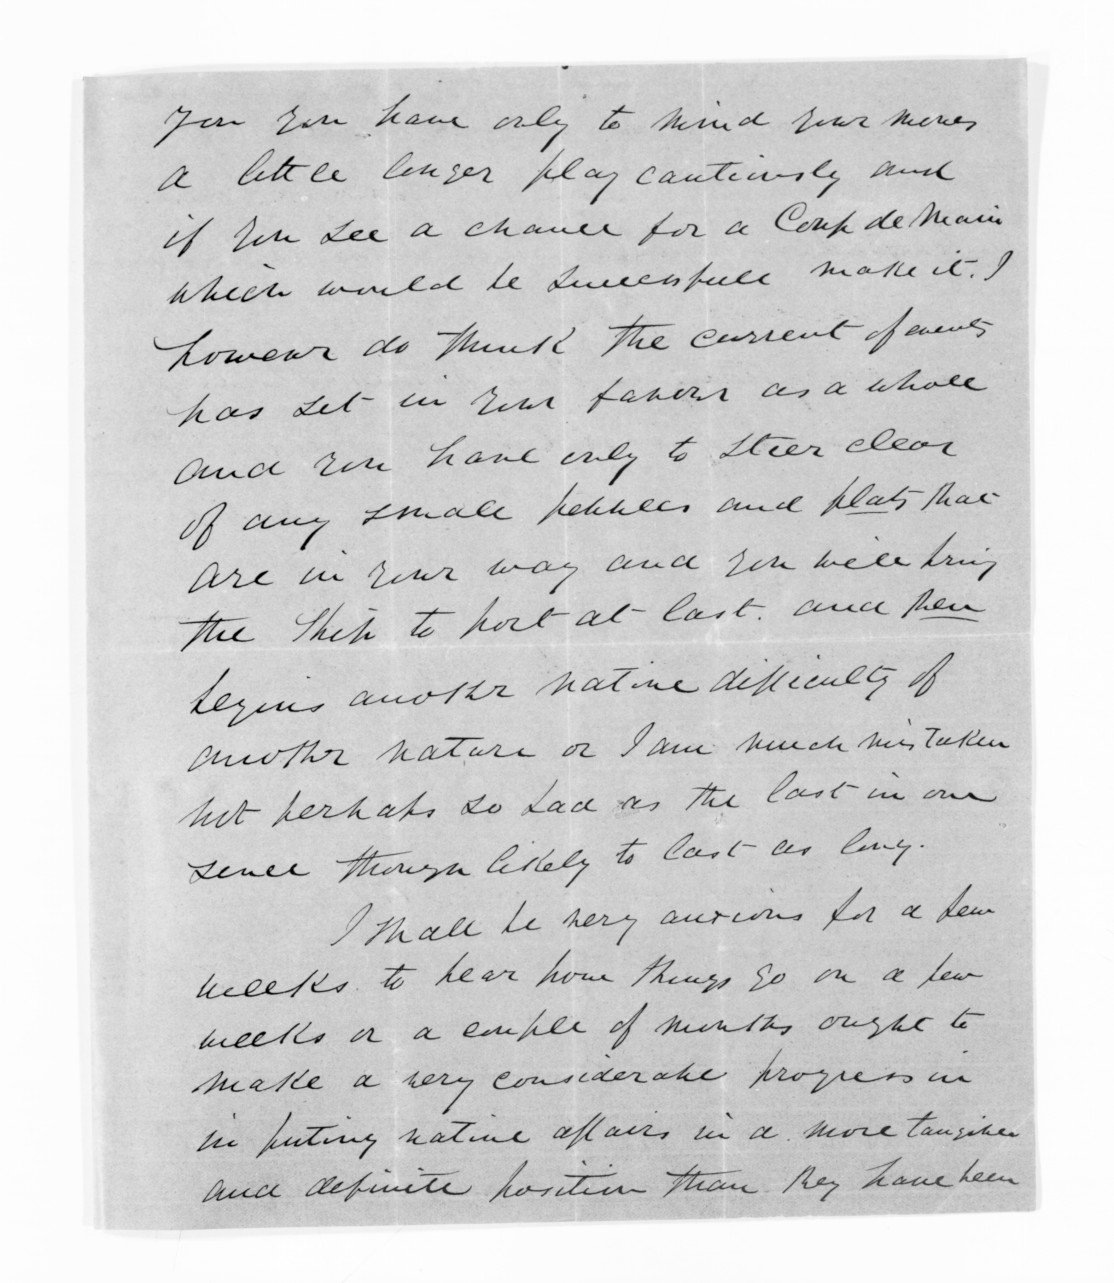 you you have only to mind your moves
a little longer play cautiously and
if you see a chance for a Coup de Main
which would be successfull make it. I
however do think the current of events
has set in your favour as a whole
and you have only to steer clear
of any small pebbles and flats that
are in your way and you will bring
the Ship to port at last. and then
begins another native difficulty of
another nature or I am much mistaken
not perhaps so bad as the last in one
sence though likely to last as long.
I shall be very anxious for a few
weeks to hear how things go on a few
weeks or a couple of months ought to
make a very considerable progress in
in puting native affairs in a more tangible
and definite position than they have been